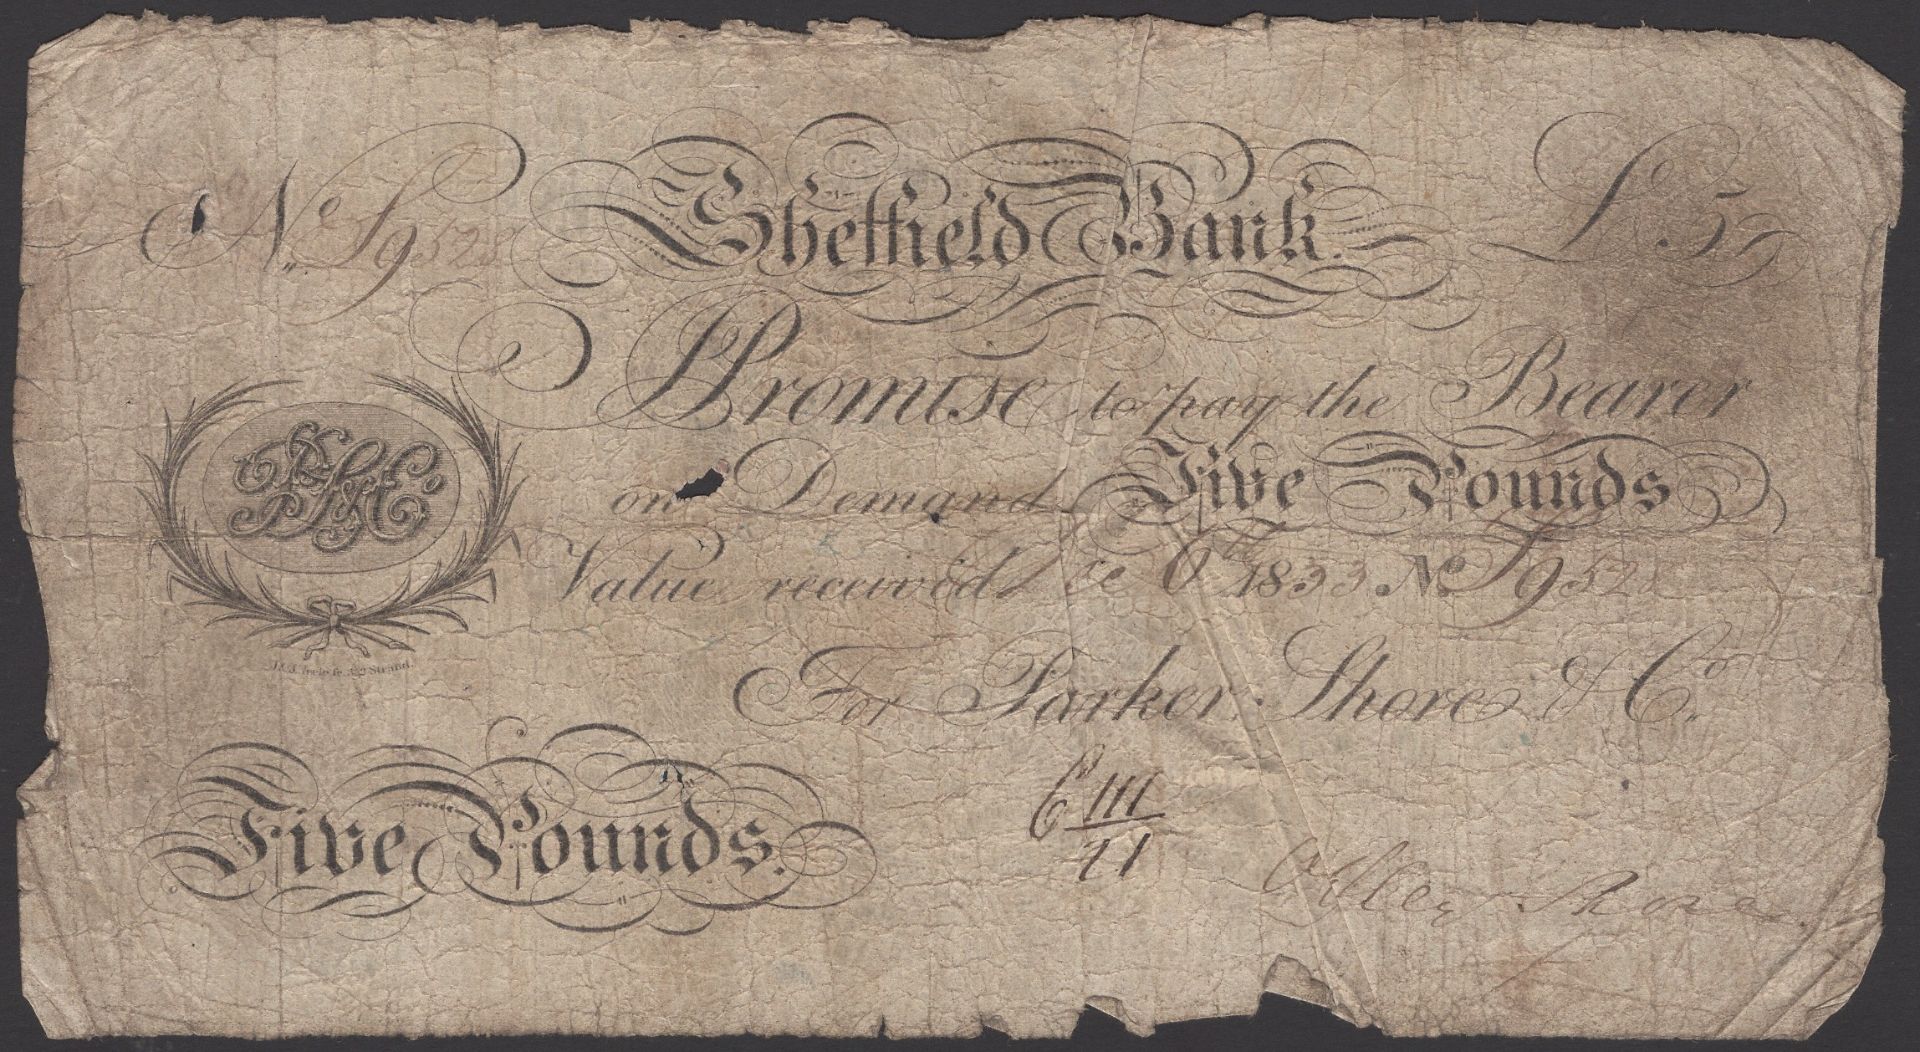 No. S9528 Sheffield Bank. £5
I Promise to pay the Bearer
on Demand Five Pounds
Value received Dec 6th 1833 No S9528
PS&Co
352 Strand
For Parker, Shore & Co.
Five Pounds.
C 111
71
Offley Shore